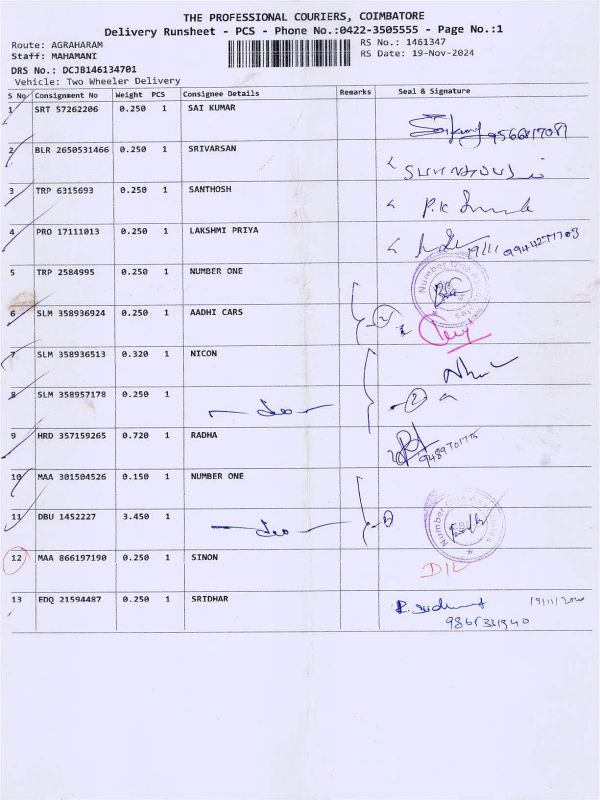 THE PROFESSIONAL COURIERS, COIMBATORE
Delivery Runsheet - PCS - Phone No.:0422-3505555 - Page No.:1
Route: AGRAHARAM
RS No.: 1461347
Staff: MAHAMANI
RS Date: 19-Nov-2024
DRS No.: DCJB146134701
Vehicle: Two Wheeler Delivery
S No Consignment No Weight PCS Consignee Details Remarks Seal & Signature
1 SRT 57262206 0.250 1 SAI KUMAR
2 BLR 2650531466 0.250 1 SRIVARSAN
3 TRP 6315693 0.250 1 SANTHOSH P.K
4 PRO 17111013 0.250 1 LAKSHMI PRIYA 19/11
5 TRP 2584995 0.250 1 NUMBER ONE Number One
6 SLM 358936924 0.250 1 AADHI CARS 2
7 SLM 358936513 0.320 1 NICON
8 SLM 358957178 0.250 1 2
9 HRD 357159265 0.720 1 RADHA
10 MAA 301504526 0.150 1 NUMBER ONE Number One
11 DBU 1452227 3.450 1
12 MAA 866197190 0.250 1 SINON D/L
13 EDQ 21594487 0.250 1 SRIDHAR